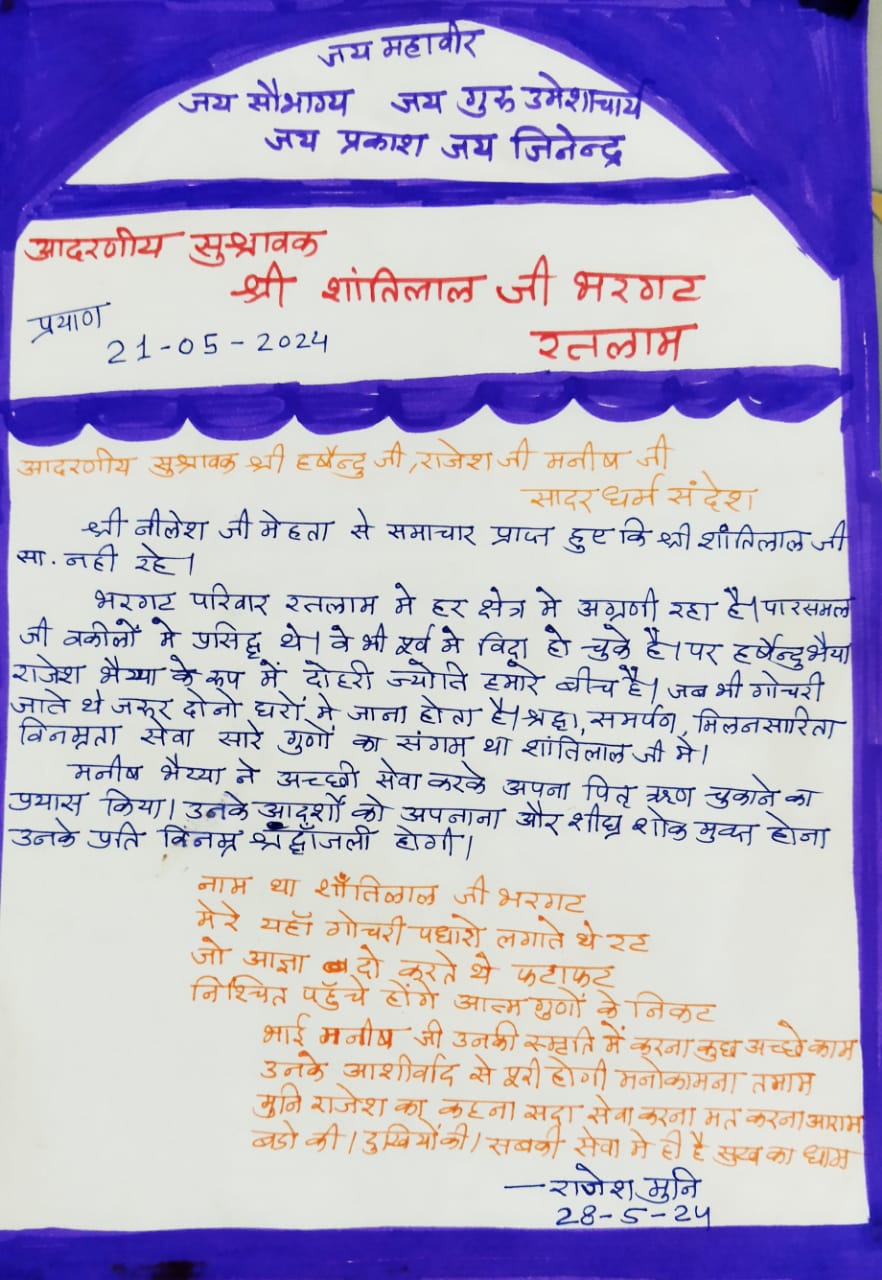 जय महावीर
जय सौभाग्य जय गुरु उमेशाचार्य
जय प्रकाश जय जिनेन्द्र
आदरणीय सुश्रावक
श्री शांतिलाल जी भरगट
रतलाम
प्रयाण
21-05-2024
आदरणीय सुश्रावक श्री हर्षेन्दु जी, राजेश जी मनीष जी
सादर धर्म संदेश
श्री नीलेश जी मेहता से समाचार प्राप्त हुए कि श्री शांतिलाल जी
सा. नही रहे।
भरगट परिवार रतलाम मे हर क्षेत्र मे अग्रणी रहा है। पारसमल
जी वकीलों मे प्रसिद्ध थे। वे भी पूर्व मे विदा हो चुके है। पर हर्षेन्दु भैया
राजेश भैय्या के रूप में दोहरी ज्योति हमारे बीच है। जब भी गोचरी
जाते थे जरूर दोनो घरों मे जाना होता है। श्रद्धा, समर्पण, मिलनसारिता
विनम्रता सेवा सारे गुणों का संगम था शांतिलाल जी मे।
मनीष भैय्या ने अच्छी सेवा करके अपना पितृ ऋण चुकाने का
प्रयास किया। उनके आदर्शों को अपनाना और शीघ्र शोक मुक्त होना
उनके प्रति विनम्र श्रद्धाँजली होगी।
नाम था शाँतिलाल जी भरगट
मेरे यहाँ गोचरी पधारो लगाते थे रट
जो आज्ञा दो करते थे फटाफट
निश्चित पहुँचे होंगे आत्म गुणों के निकट
भाई मनीष जी उनकी स्मृति में करना कुछ अच्छे काम
उनके आशीर्वाद से पूरी होगी मनोकामना तमाम
मुनि राजेश का कहना सदा सेवा करना मत करना आराम
बडो की। दुखियों की। सबकी सेवा मे ही है सुख का धाम
—राजेश मुनि
28-5-24